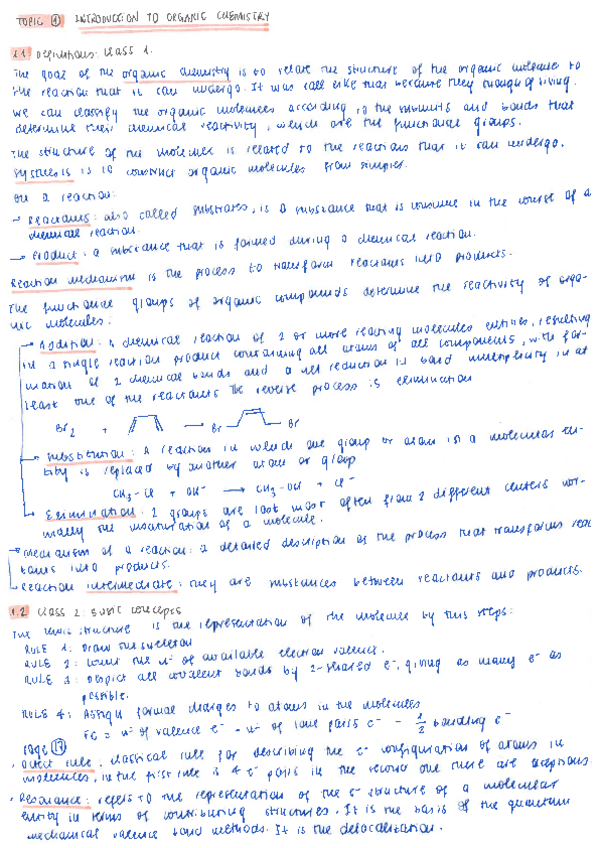 TOPIC 1 INTRODUCTION TO ORGANIC CHEMISTRY
1.1 Definitions: Class 1.
The goal of the organic chemistry is to relate the structure of the organic molecules to
the reaction that it can undergo. It was call like that because they though of living.
We can classify the organic molecules according to the and bonds that
determine their chemical reactivity, which are the functional groups.
The structure of the molecules is related to the reactions that it can undergo.
Systhesis is to construct organic molecules from simples.
On a reaction:
→ Reactants: also called substrates, is a substance that is consume in the course of a
chemical reaction.
→ Product: a substance that is formed during a chemical reaction.
Reaction mechanism is the process to transform reactants into products.
The functional groups of organic compounds determine the reactivity of orga-
nic molecules:
→ Addition: A chemical reaction of 2 or more reacting molecules entities, resulting
in a single reaction product containing all atoms of all components, with for-
mation of 2 chemical bonds and a net reduction in bond multiplicity in at
least one of the reactants. The reverse process is elimination
Br2 + → Br Br
→ Substitution: A reaction in which one group or atom in a molecular en-
tity is replaced by another atom or group
CH3-Cl + OH⁻ → CH3-OH + Cl⁻
→ Elimination: 2 groups are lost most often from 2 different centers nor-
mally the insaturation of a molecule.
→ Mechanism of a reaction: a detailed description of the process that transforms reac
tants into products.
→ Reaction intermediate: they are substances between reactants and products.
1.2 Class 2: Basic concepts
The Lewis structure is the representation of the molecule by this steps:
RULE 1: Draw the skeleton
RULE 2: Count the nº of available electron valence.
RULE 3: Depict all covalent bonds by 2-shared e⁻, giving as many e⁻ as
possible.
RULE 4: Assign formal charges to atoms in the molecules
FC = nº of valence e⁻ - nº of lone pairs e⁻ - 1/2 bonding e⁻
Page 17
· Octet rule: classical rule for describing the e⁻ configuration of atoms in
molecules, in the first rule is 4 e⁻ pairs in the second one there are exceptions
· Resonance: refers to the representation of the e⁻ structure of a molecular
entity in terms of contributing structures. It is the basis of the quantum
mechanical valence bond methods. It is the delocalization.